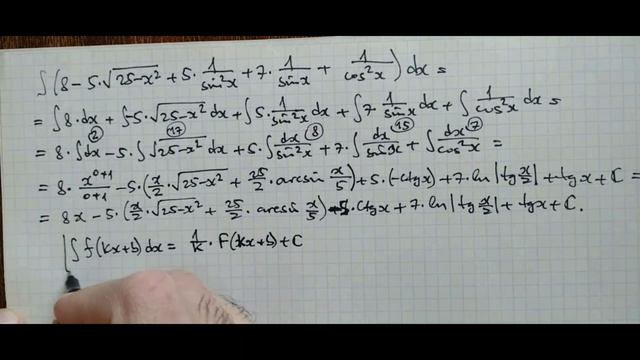 ∫(8 - 5·√25-x² + 5·1/sin²x + 7·1/sinx + 1/cos²x) dx =
= ∫8·dx + ∫-5·√25-x² dx + ∫5·1/sin²x dx + ∫7·1/sinx dx + ∫1/cos²x dx =
② ⑰ ⑧ ⑮ ⑦
= 8·∫dx - 5·∫√25-x² dx + 5·∫dx/sin²x + 7·∫dx/sinx + ∫dx/cos²x =
= 8·x⁰⁺¹/0+1 - 5·(x/2·√25-x² + 25/2·arcsin x/5) + 5·(-ctgx) + 7·ln|tg x/2| + tgx + C =
= 8x - 5·(x/2·√25-x² + 25/2·arcsin x/5) - 5·ctgx + 7·ln|tg x/2| + tgx + C.
∫f(kx+b)dx = 1/k·F(kx+b) + C